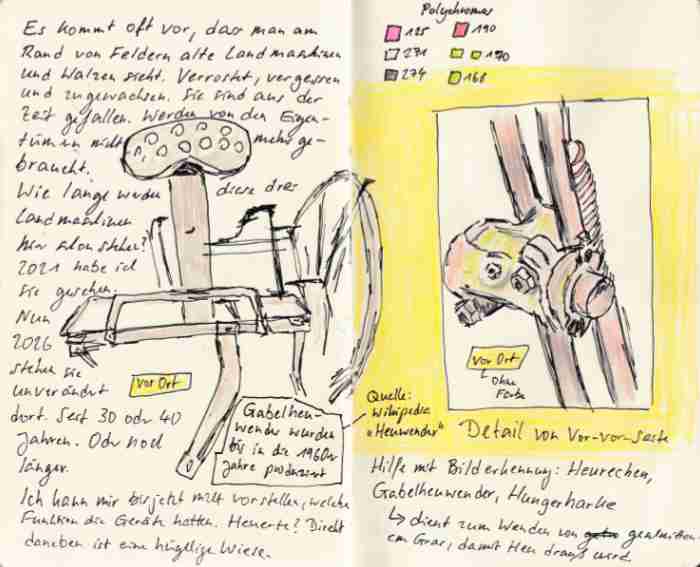 Es kommt oft vor, dass man am
Rand von Feldern alte Landmaschinen
und Walzen sieht. Verrostet, vergessen
und zugewachsen. Sie sind aus der
Zeit gefallen. Werden von den Eigen-
tümern nicht mehr ge-
braucht.
Wie lange werden diese drei
Landmaschinen
hier schon stehen?
2021 habe ich
sie gesehen.
Nun
2026
stehen sie
unverändert
dort. Seit 30 oder 40
Jahren. Oder noch
länger.
vor Ort
Gabelheu-
wender wurden
bis in die 1960er
Jahre produziert
Quelle:
Wikipedia
„Heuwender"
Ich kann mir bis jetzt nicht vorstellen, welche
Funktion die Geräte hatten. Heuernte? Direkt
daneben ist eine hügelige Wiese.
Polychromos
125 190
271 170
274 168
vor Ort
ohne
Farbe
Detail von Vor-vor-Seite
Hilfe mit Bilderkennung: Heurechen,
Gabelheuwender, Hungerharke
dient zum Wenden von geschnitten-
em Gras, damit Heu draus wird